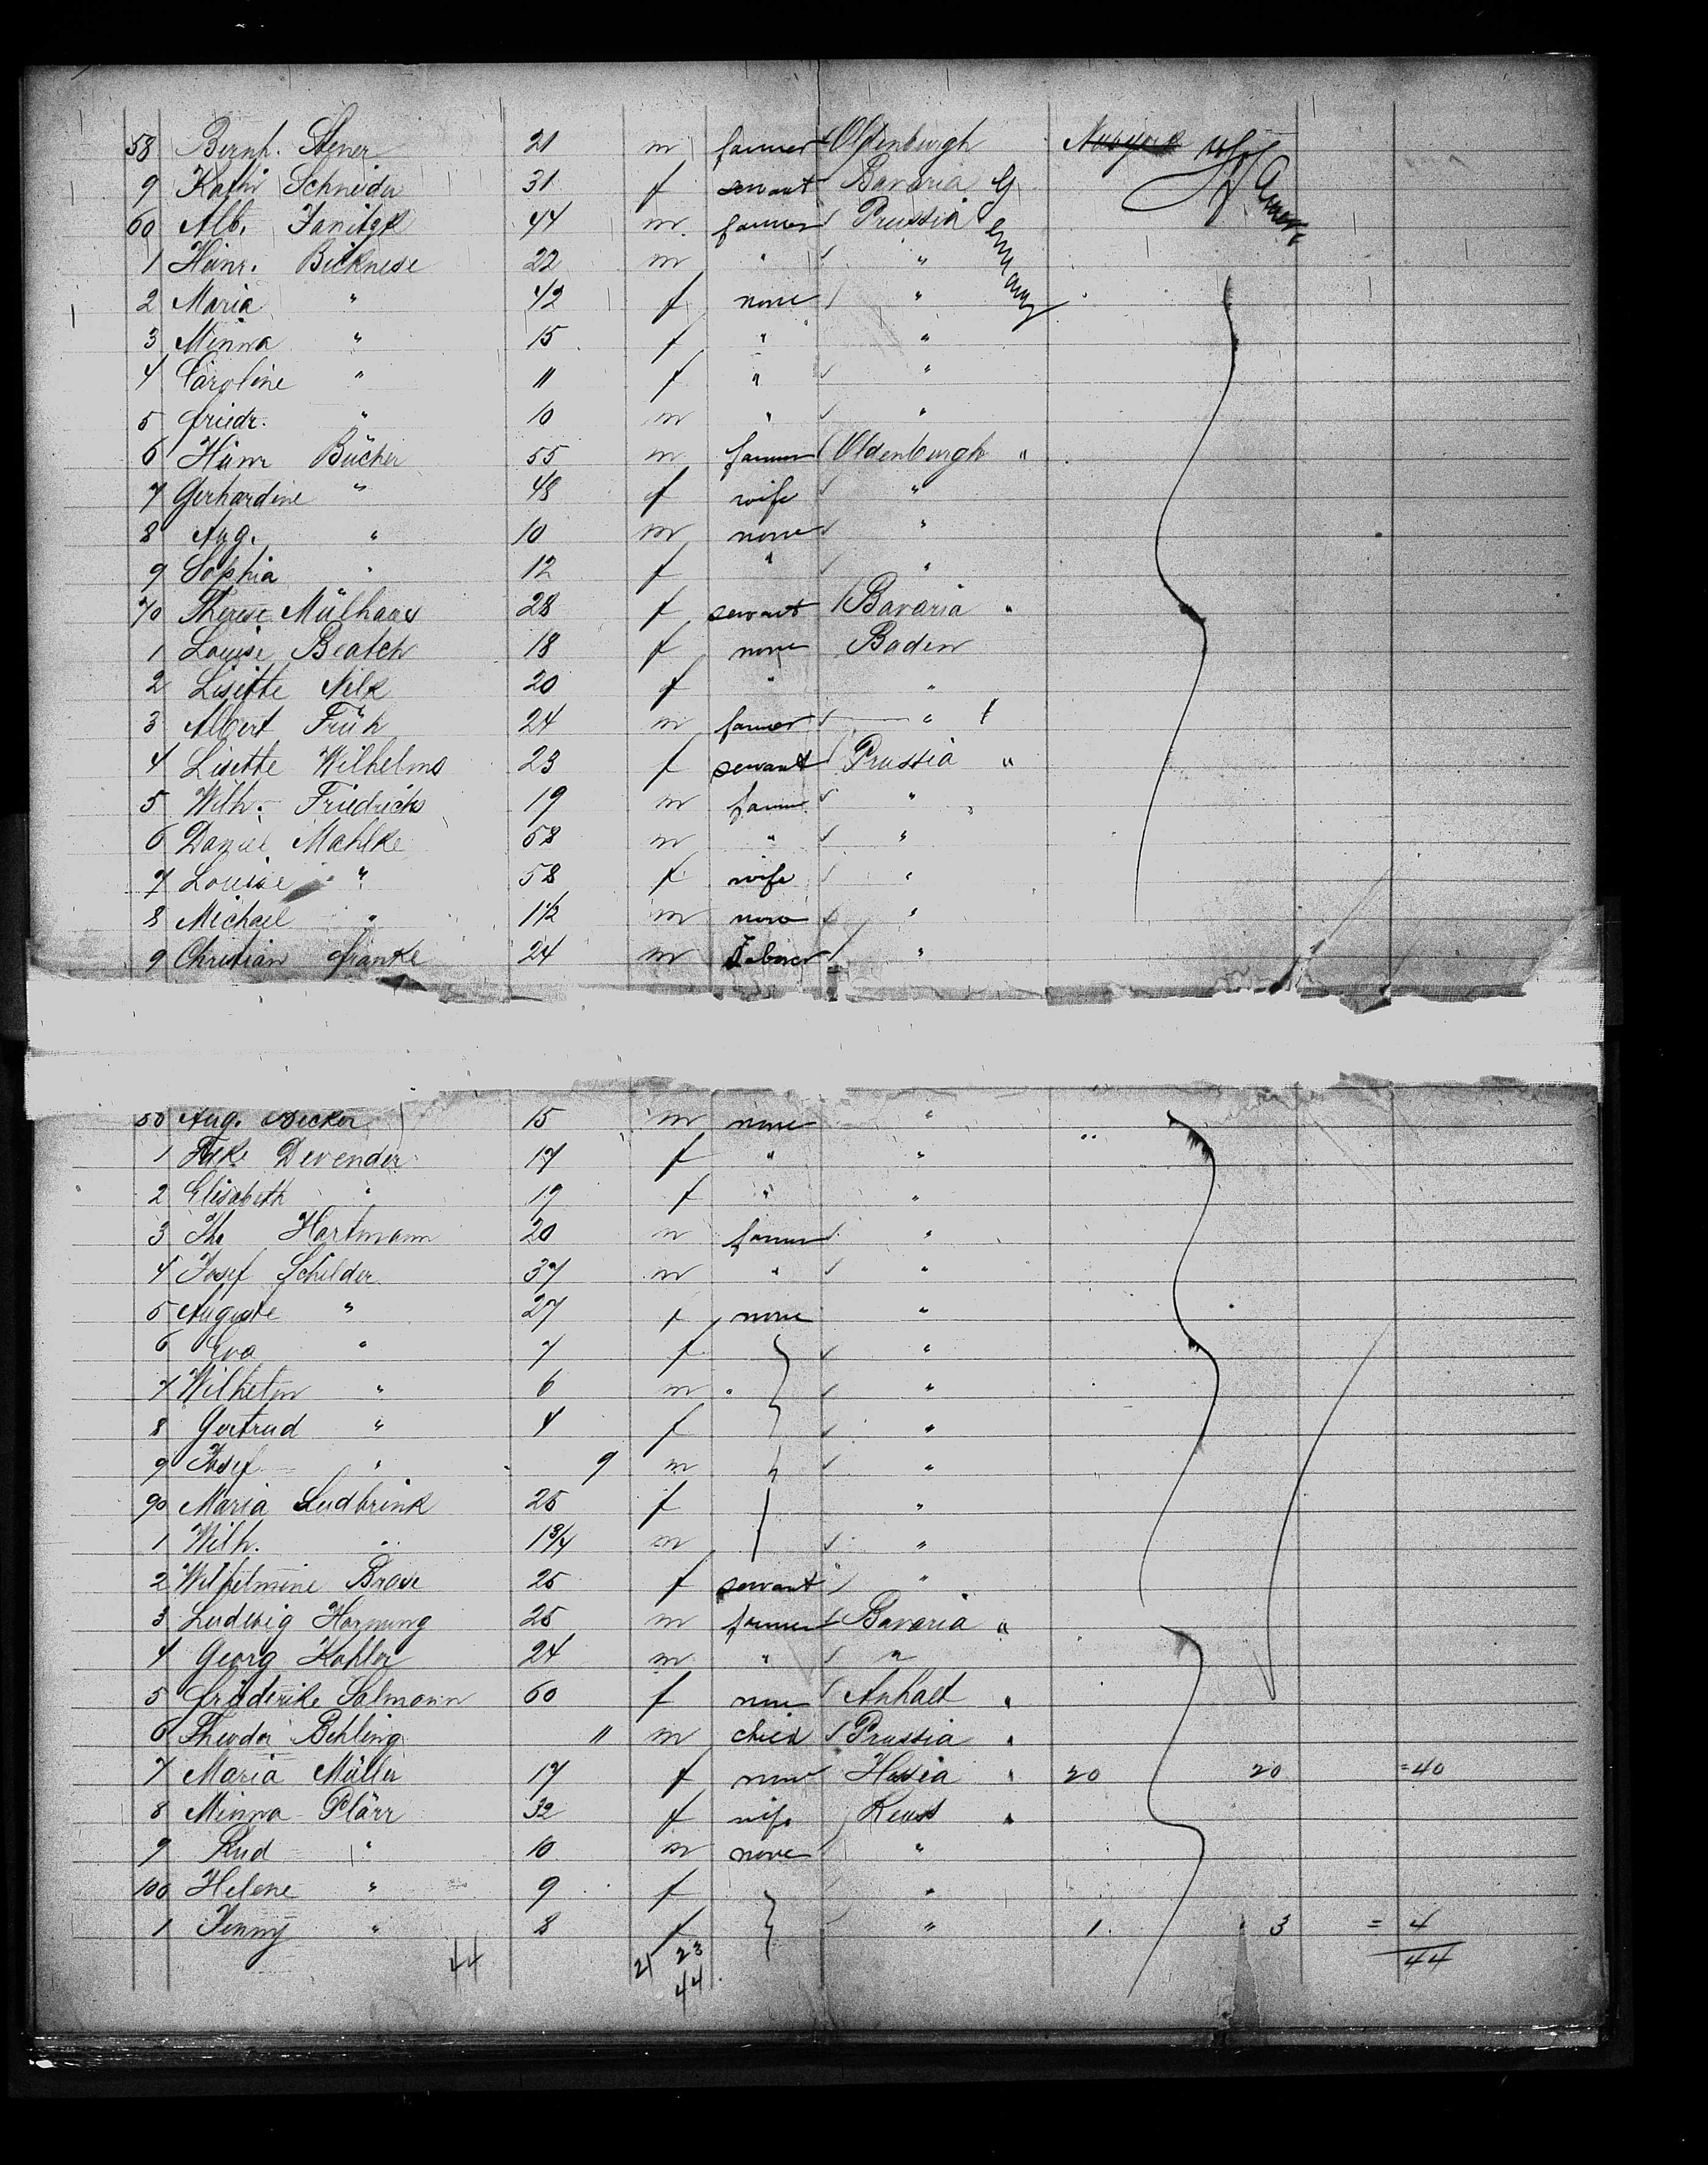 58 Bernh. Stener 21 m farmer Oldenburgh Newyork U S of America
9 Kathi Schneider 31 f servant Bavaria Germany
60 Alb. Janitzk 44 m farmer Prussia
1 Heinr. Bicknese 22 m " "
2 Maria " 42 f none "
3 Minna " 15 f " "
4 Caroline " 11 f " "
5 Friedr. " 10 m " "
6 Heinr Bücher 55 m farmer Oldenburgh "
7 Gerhardine " 48 f wife "
8 Aug. " 10 m none "
9 Sophia " 12 f " "
70 Therese Mülhaas 28 f servant Bavaria "
1 Louise Beatch 18 f none Baden
2 Lisette Nilk 20 f " "
3 Albert Früh 24 m farmer "
4 Lisette Wilhelms 23 f servant Prussia "
5 Wilh. Friedrichs 19 m farmer "
6 Daniel Mahlke 58 m " "
7 Louise " 58 f wife "
8 Michael " 1 1/2 m none "
9 Christian Franke 24 m Laborer "
80 Aug. Becker 15 m none "
1 Devender 17 f " "
2 Elisabeth " 19 f " "
3 Hartmann 20 m farmer "
4 Josef Schilder 37 m " "
5 Auguste " 27 f none "
6 Eva " 7 f "
7 Wilhelm " 6 m "
8 Gertrud " 4 f "
9 Josef " 9 m "
90 Maria Ludbrink 25 f "
1 Wilh. " 1 3/4 m "
2 Wilhelmine Brose 25 f servant "
3 Ludwig Hornung 25 m farmer Bavaria "
4 Georg Kohler 24 m " "
5 Friderike Salmann 60 f none Anhalt "
6 Theodor Behling 11 m child Prussia "
7 Maria Müller 17 f none Hessia " 20 20 =40
8 Minna Plärr 32 f wife Reuss "
9 Rud " 10 m none "
100 Helene " 9 f "
1 Jenny " 8 f " 1 3 = 4
44 21 23 44
44